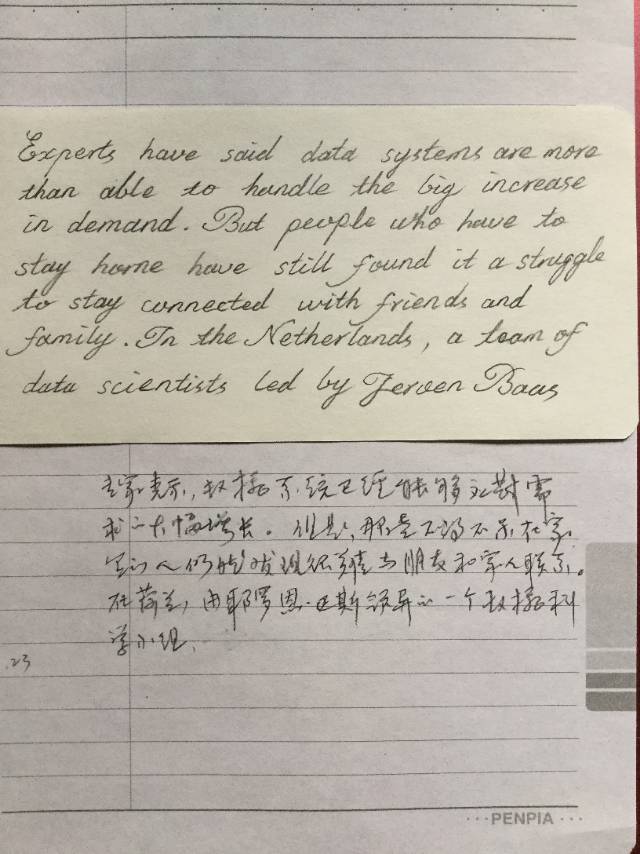 Experts have said data systems are more
than able to handle the big increase
in demand. But people who have to
stay home have still found it a struggle
to stay connected with friends and
family. In the Netherlands, a team of
data scientists led by Jeroen Baas
专家表示,数据系统已经能够应对需
求的大幅增长。但是,那些不得不呆在家
里的人们仍发现很难与朋友和家人联系。
在荷兰,由耶罗恩·巴斯领导的一个数据科
学小组,
.23
···PENPIA···